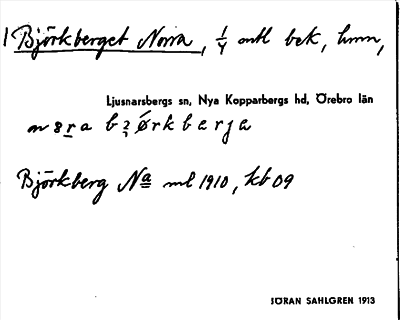 Björkberget Norra, 1/4 mtl bek, hmn,
Ljusnarsbergs sn, Nya Kopparbergs hd, Örebro län
Björkberg Na ml 1910, kb 09
JÖRAN SAHLGREN 1913